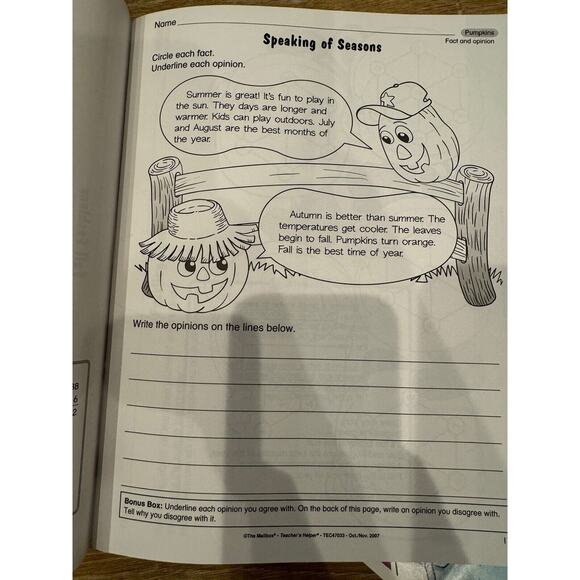 Name
Pumpkins
Fact and opinion
Speaking of Seasons
Circle each fact.
Underline each opinion.
Summer is great! It's fun to play in
the sun. They days are longer and
warmer. Kids can play outdoors. July
and August are the best months of
the year.
Autumn is better than summer. The
temperatures get cooler. The leaves
begin to fall. Pumpkins turn orange.
Fall is the best time of year.
Write the opinions on the lines below.
38
6
2
Bonus Box: Underline each opinion you agree with. On the back of this page, write an opinion you disagree with.
Tell why you disagree with it.
©The Mailbox® • Teacher's Helper® • TEC47033 • Oct./Nov. 2007